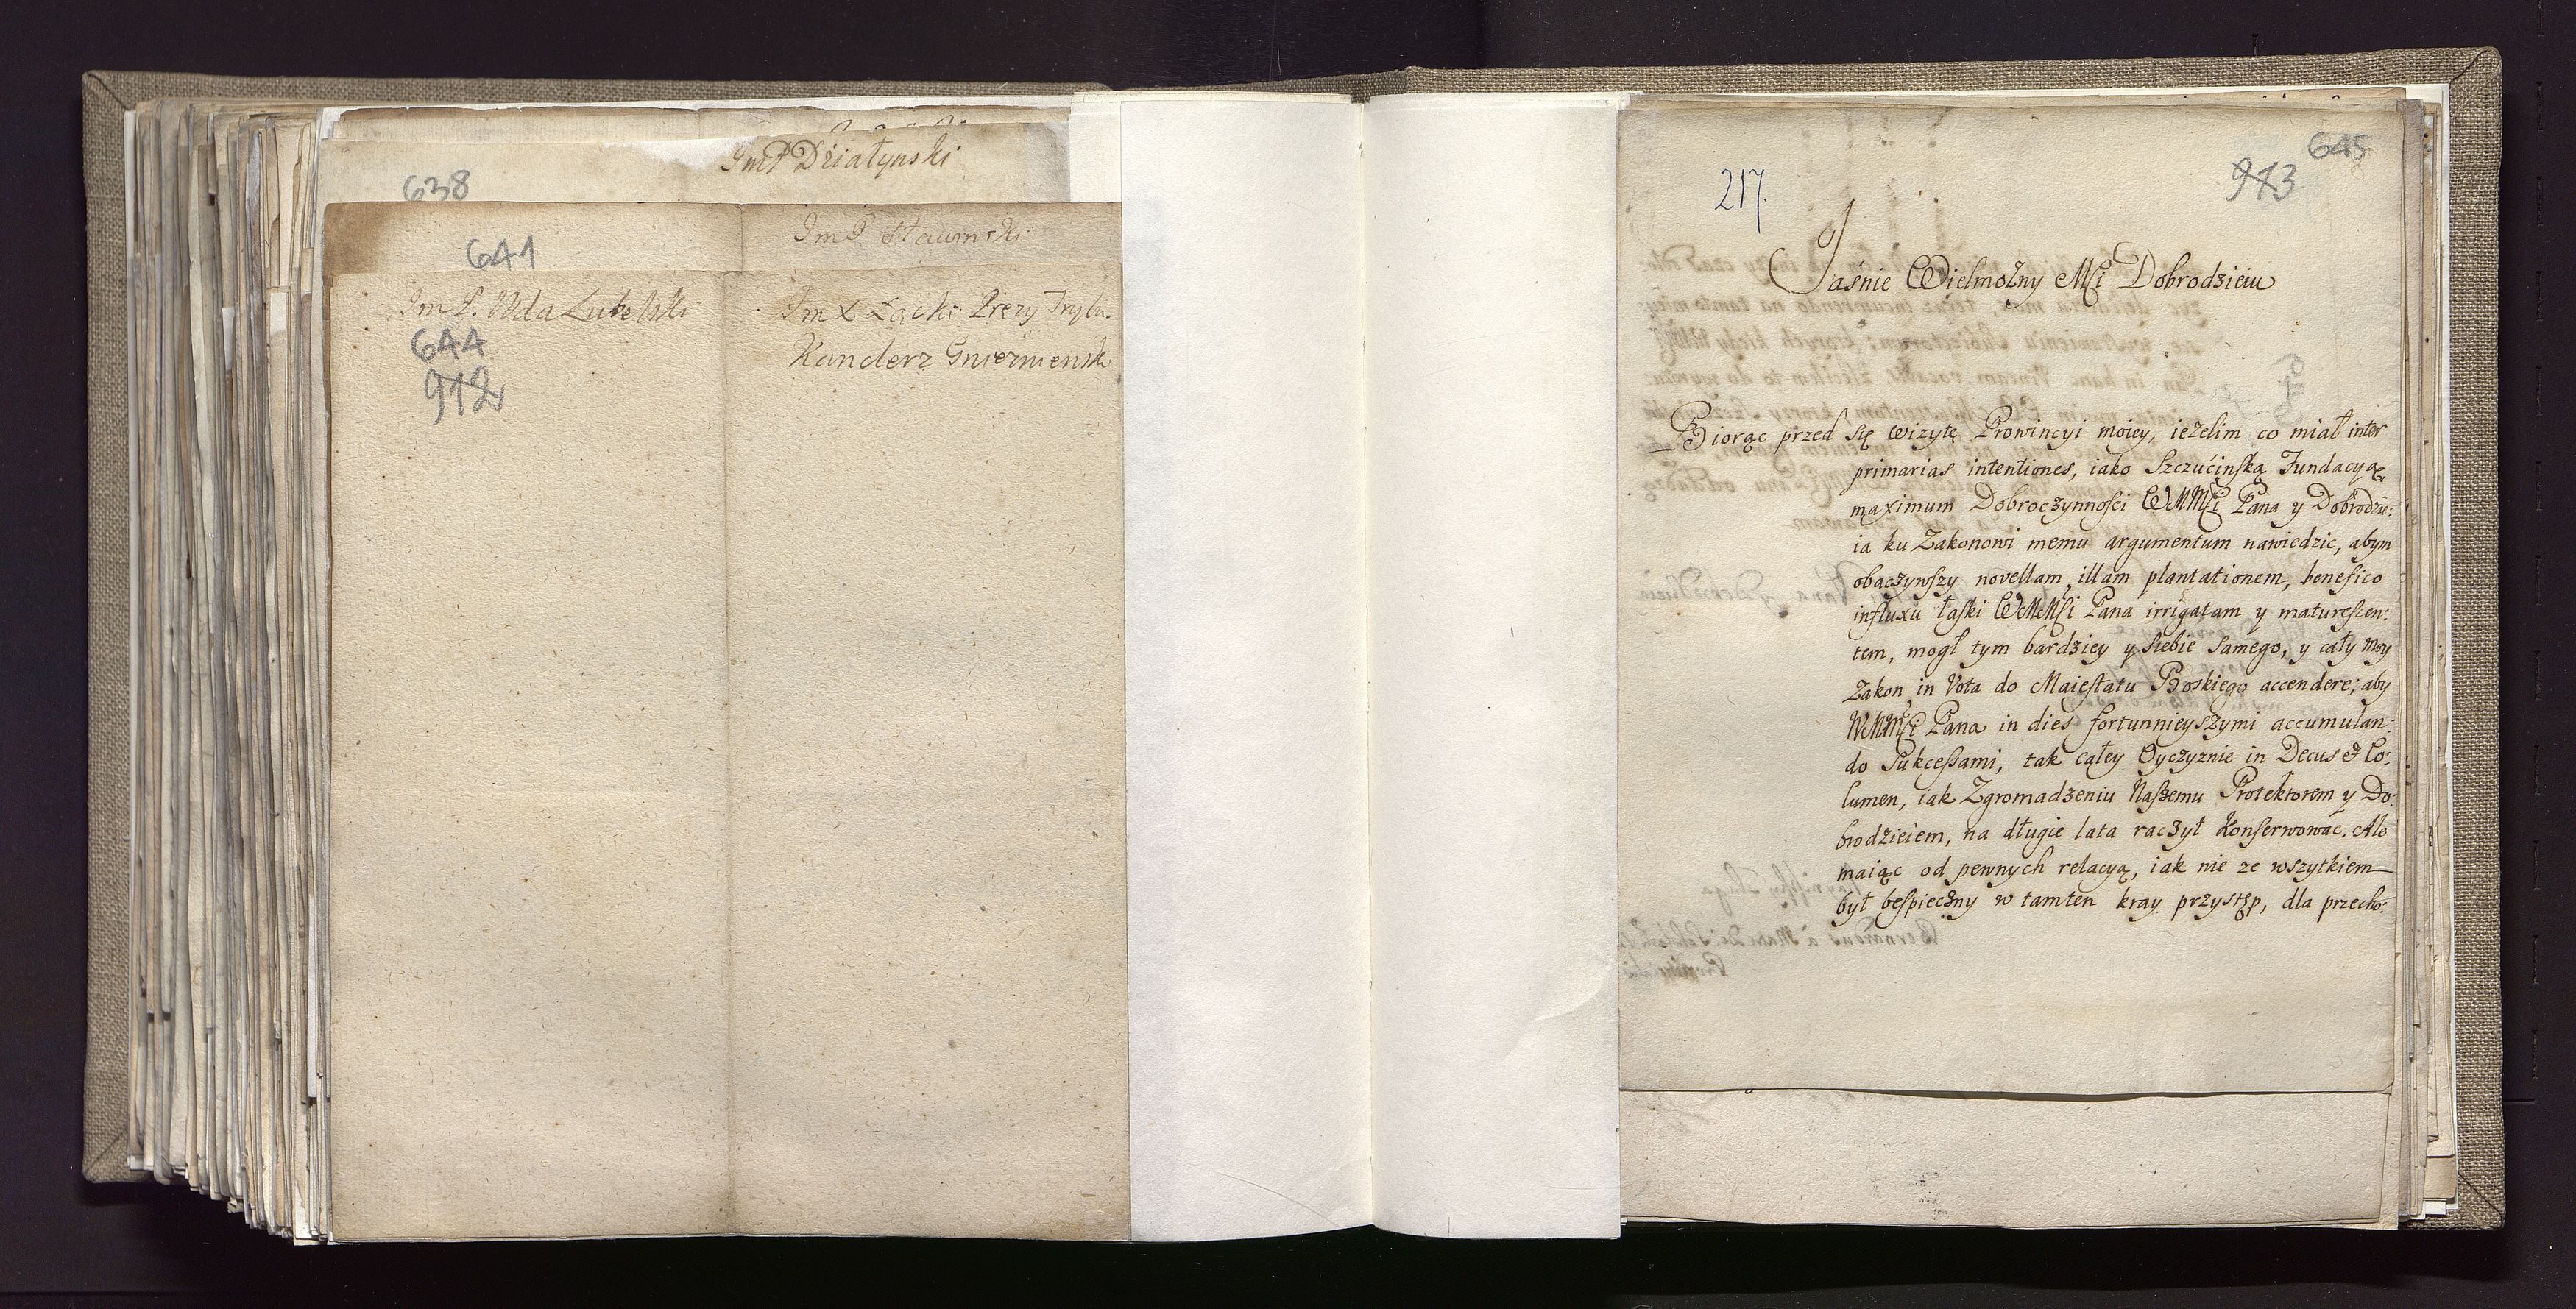 ImP Działynski
638
ImP Sławinski
641
Im P. Wda Lubelski
Im X Łącki Prezy Trybu.
644
Kanclerz Gnieznienski
912
645
913
217.
Jaśnie Wielmożny Mści Dobrodzieiu
Biorąc przed się wizytę Prowincyi moiey, ieżelim co miał inter
primarias intentiones, iako Szczućinską Fundacyą
maximum Dobroczynnosci WMMści Pana y Dobrodzie:
ia ku Zakonowi memu argumentum nawiedzic, abym
obaczywszy novellam illam plantationem, benefico
influxu łaski WMMści Pana irrigatam y maturescen:
tem, mogł tym bardziey y siebie samego, y cały moy
Zakon in Vota do Maiestatu Boskiego accendere; aby
WMMści Pana in dies fortunnieyszymi accumulan:
do Sukcessami, tak całey Oyczyznie in Decus & Co:
lumen, iak Zgromadzeniu Naszemu Protektorem y Do:
brodzieiem, na długie lata raczył konserwowac. Ale
maiąc od pewnych relacyą, iak nie ze wszytkiem
był bespieczny w tamten kray przystęp, dla przecho: